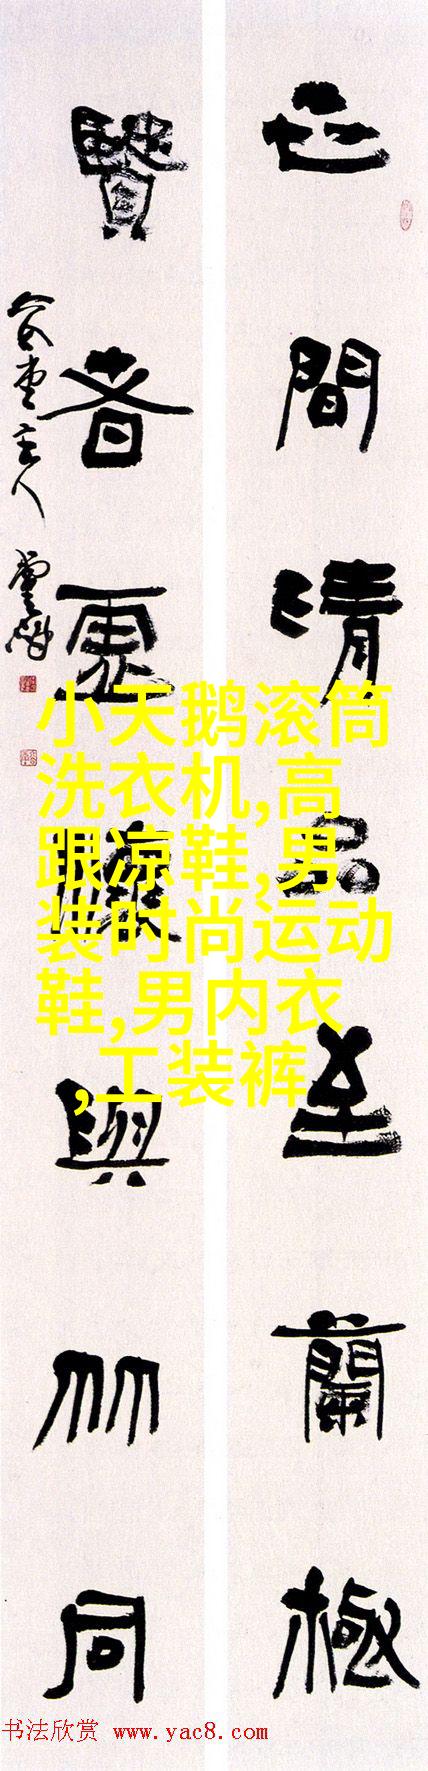 世間清品至蘭極
賢者虛懷與竹同
小天鹅滚筒
洗衣机,高
跟凉鞋,男
装时尚运动
鞋,男内衣
,工装裤
书法欣赏 www.yac8.com